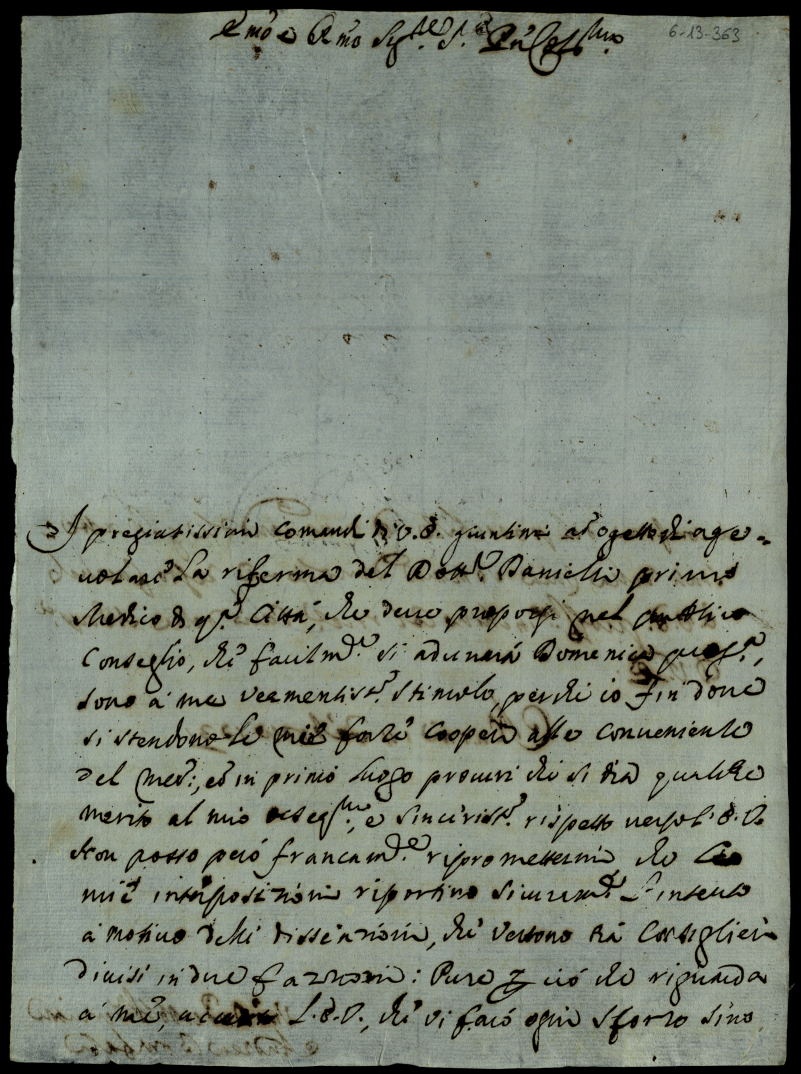 Emõ e Rmõ Sig.re S.r Prõn Col.mo
6-13-363
I pregiatissimi comandi di V.E. giuntimi ad ogetto di age=
volare la riferma del Dott.r Danielli primo
Medico di q.ta Città, che deve proporsi nel publico
Conseglio, che facilm.e si adunerà Domenica pross.a,
sono a me veementiss.o stimolo, perche io fin dove
si stendono le mie forze cooperi alle convenienze
del mes.o, ed in primo luogo procuri che si dia qualche
merito al mio osseq.mo, e sinceriss.o rispetto verso l'E.V.
Non posso però francam.e ripromettermi che le
mie interposizioni riportino sicuram.e l'intento
a motivo delli dissenzioni, che vertono trà Consiglieri
divisi in due fazzioni: Pure p ciò che riguarda
a me, L'E.V., che vi farò ogni sforzo sino